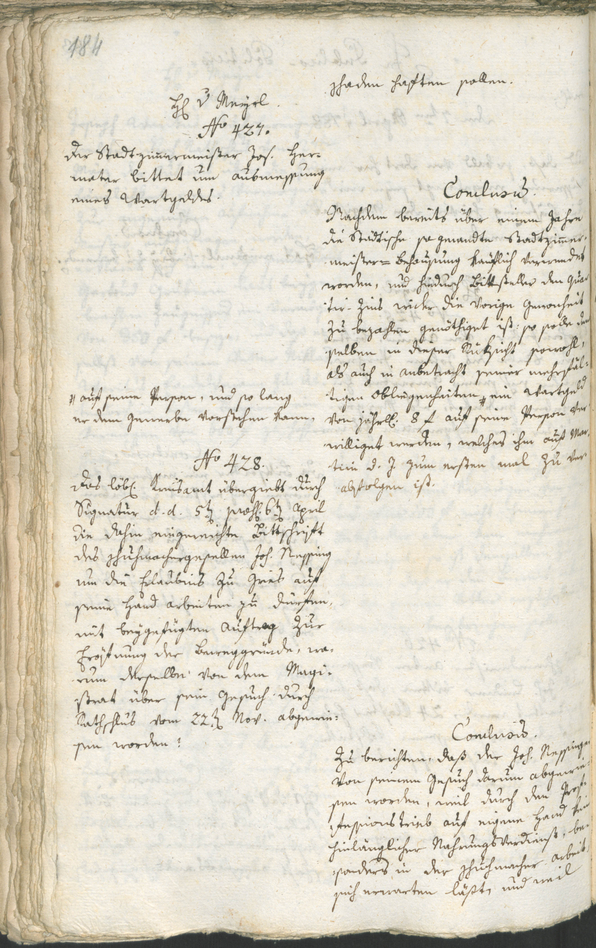 184
H. v. Meyrl.
No 427.
Der Stadtzimmermeister Joh. Her-
meter bittet um aubmessung
eines Wartgeldes.
auf seine Person, und so lang
er dem Gewerbe vorstehen kann,
No 428.
Das löbl. Kreisamt übergiebt durch
Signatur d. d. 5t praes. 6t April
die dahin eingereichte Bittschrift
des Schuhmachergesellen Joh. Nessing
um die Erlaubnis zu Gries auf
seine Hand arbeiten zu dürfen,
mit beygefügten Auftrag zur
Eröffnung der Beweggründe, wa-
rum derselbe von dem Magi-
strat über sein Gesuch durch
Rathschluß vom 22t Nov. abgewie-
sen worden!
schaden haften sollen.
Conclusum.
Nachdem bereits über einem Jahre
die Städtische so genannte Stadtzimmer-
meister-Behausung käuflich verwendet
worden, und hiedurch Bittsteller den Quar-
tier-Zins wider die vorige Gewonheit
zu bezahlen genöthiget ist, so solle dem-
selben in dieser Rücksicht sowohl,
als auch in anbetracht seiner mehrfäl-
tigen Obliegenheiten, ein Wartgeld
von jährl. 8 f auf seine Person ver-
williget werden, welches ihm auf Mar-
tini d. J. zum ersten mal zu ver-
abfolgen ist.
Conclusum.
Zu berichten, daß der Joh. Nessinger
von seinem Gesuch darum abgewie-
sen worden, weil durch den Prof-
fessionstrieb auf eigene Hand kein
hinlänglicher Nahrungsverdienst, be-
sonders in der Schuhmacher arbeit
sich erwarten läßt, und weil